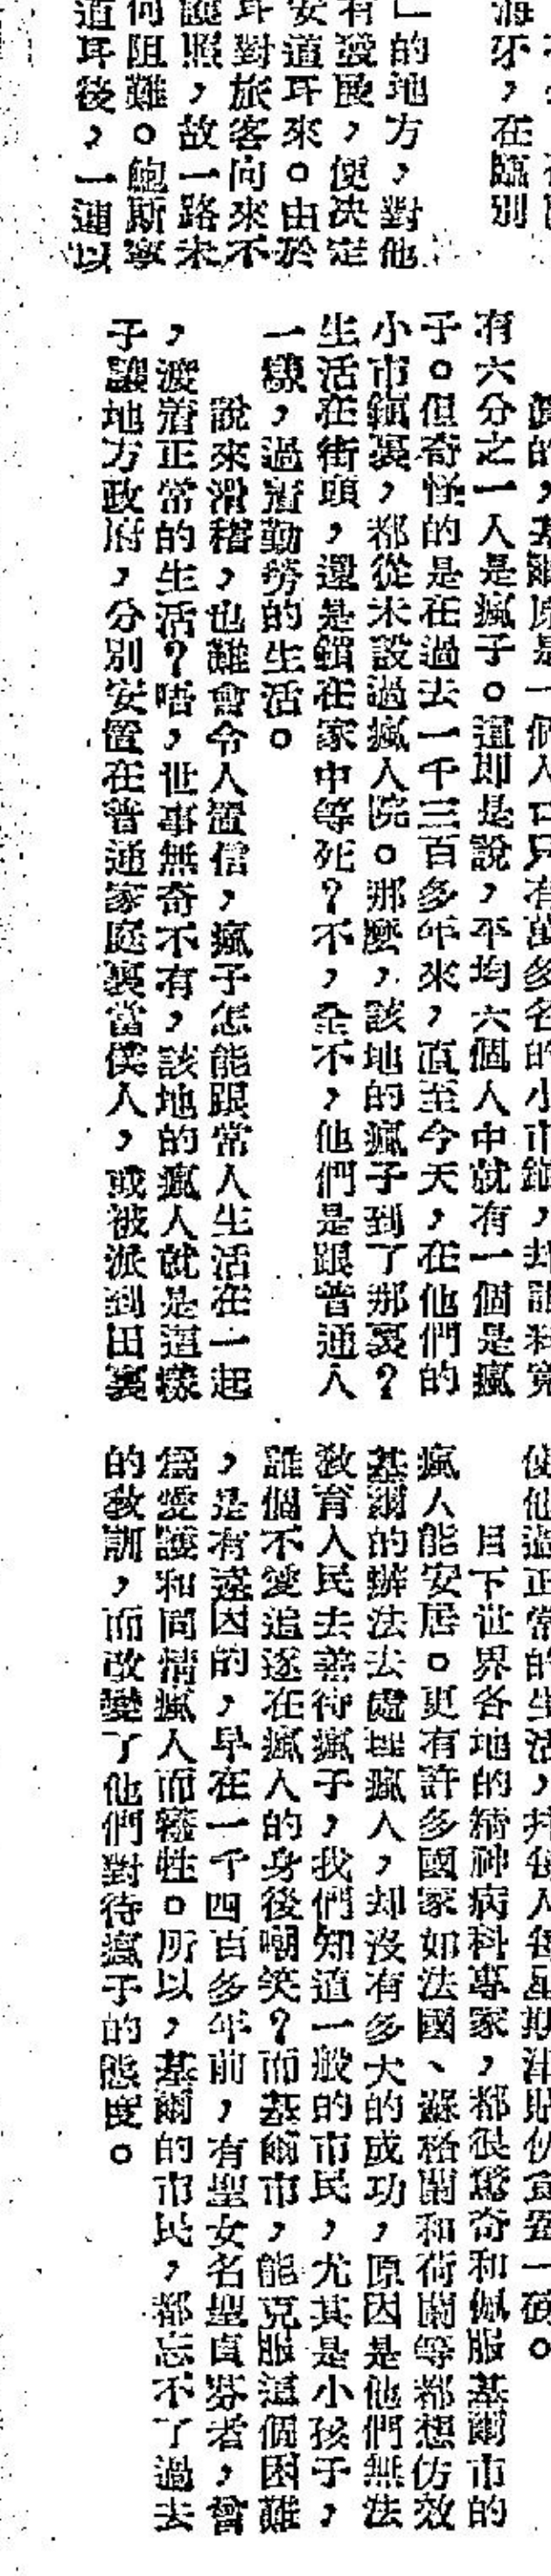 海牙，在臨別
」的地方，對他
有發展，便決定
安道耳來。由於
耳對旅客向來不
護照，故一路未
何阻難。鮑斯寧
道耳後，一連以
有六分之一人是瘋子。這即是說，平均六個人中就有一個是瘋
子。但奇怪的是在過去一千三百多年來，直至今天，在他們的
小市鎮裏，都從未設過瘋人院。那麼，該地的瘋子到了那裏？
生活在街頭，還是鎖在家中等死？不，全不，他們是跟普通人
一樣，過着勤勞的生活。
說來滑稽，也難會令人置信，瘋子怎能跟常人生活在一起
，渡着正常的生活？唔，世事無奇不有，該地的瘋人就是這樣
子讓地方政府，分別安置在普通家庭裏當僕人，或被派到田裏
使他過正常的生活，
目下世界各地的精神病科專家，都很驚奇和佩服基爾市的
瘋人能安居。更有許多國家如法國、蘇格蘭和荷蘭等都想仿效
基爾的辦法去處理瘋人，却沒有多大的成功，原因是他們無法
教育人民去善待瘋子，我們知道一般的市民，尤其是小孩子，
誰個不愛追逐在瘋人的身後嘲笑？而基爾市，能克服這個困難
，是有遠因的，早在一千四百多年前，有聖女名聖眞芬者，曾
爲愛護和同情瘋人而犧牲。所以，基爾的市民，都忘不了過去
的教訓，而改變了他們對待瘋子的態度。